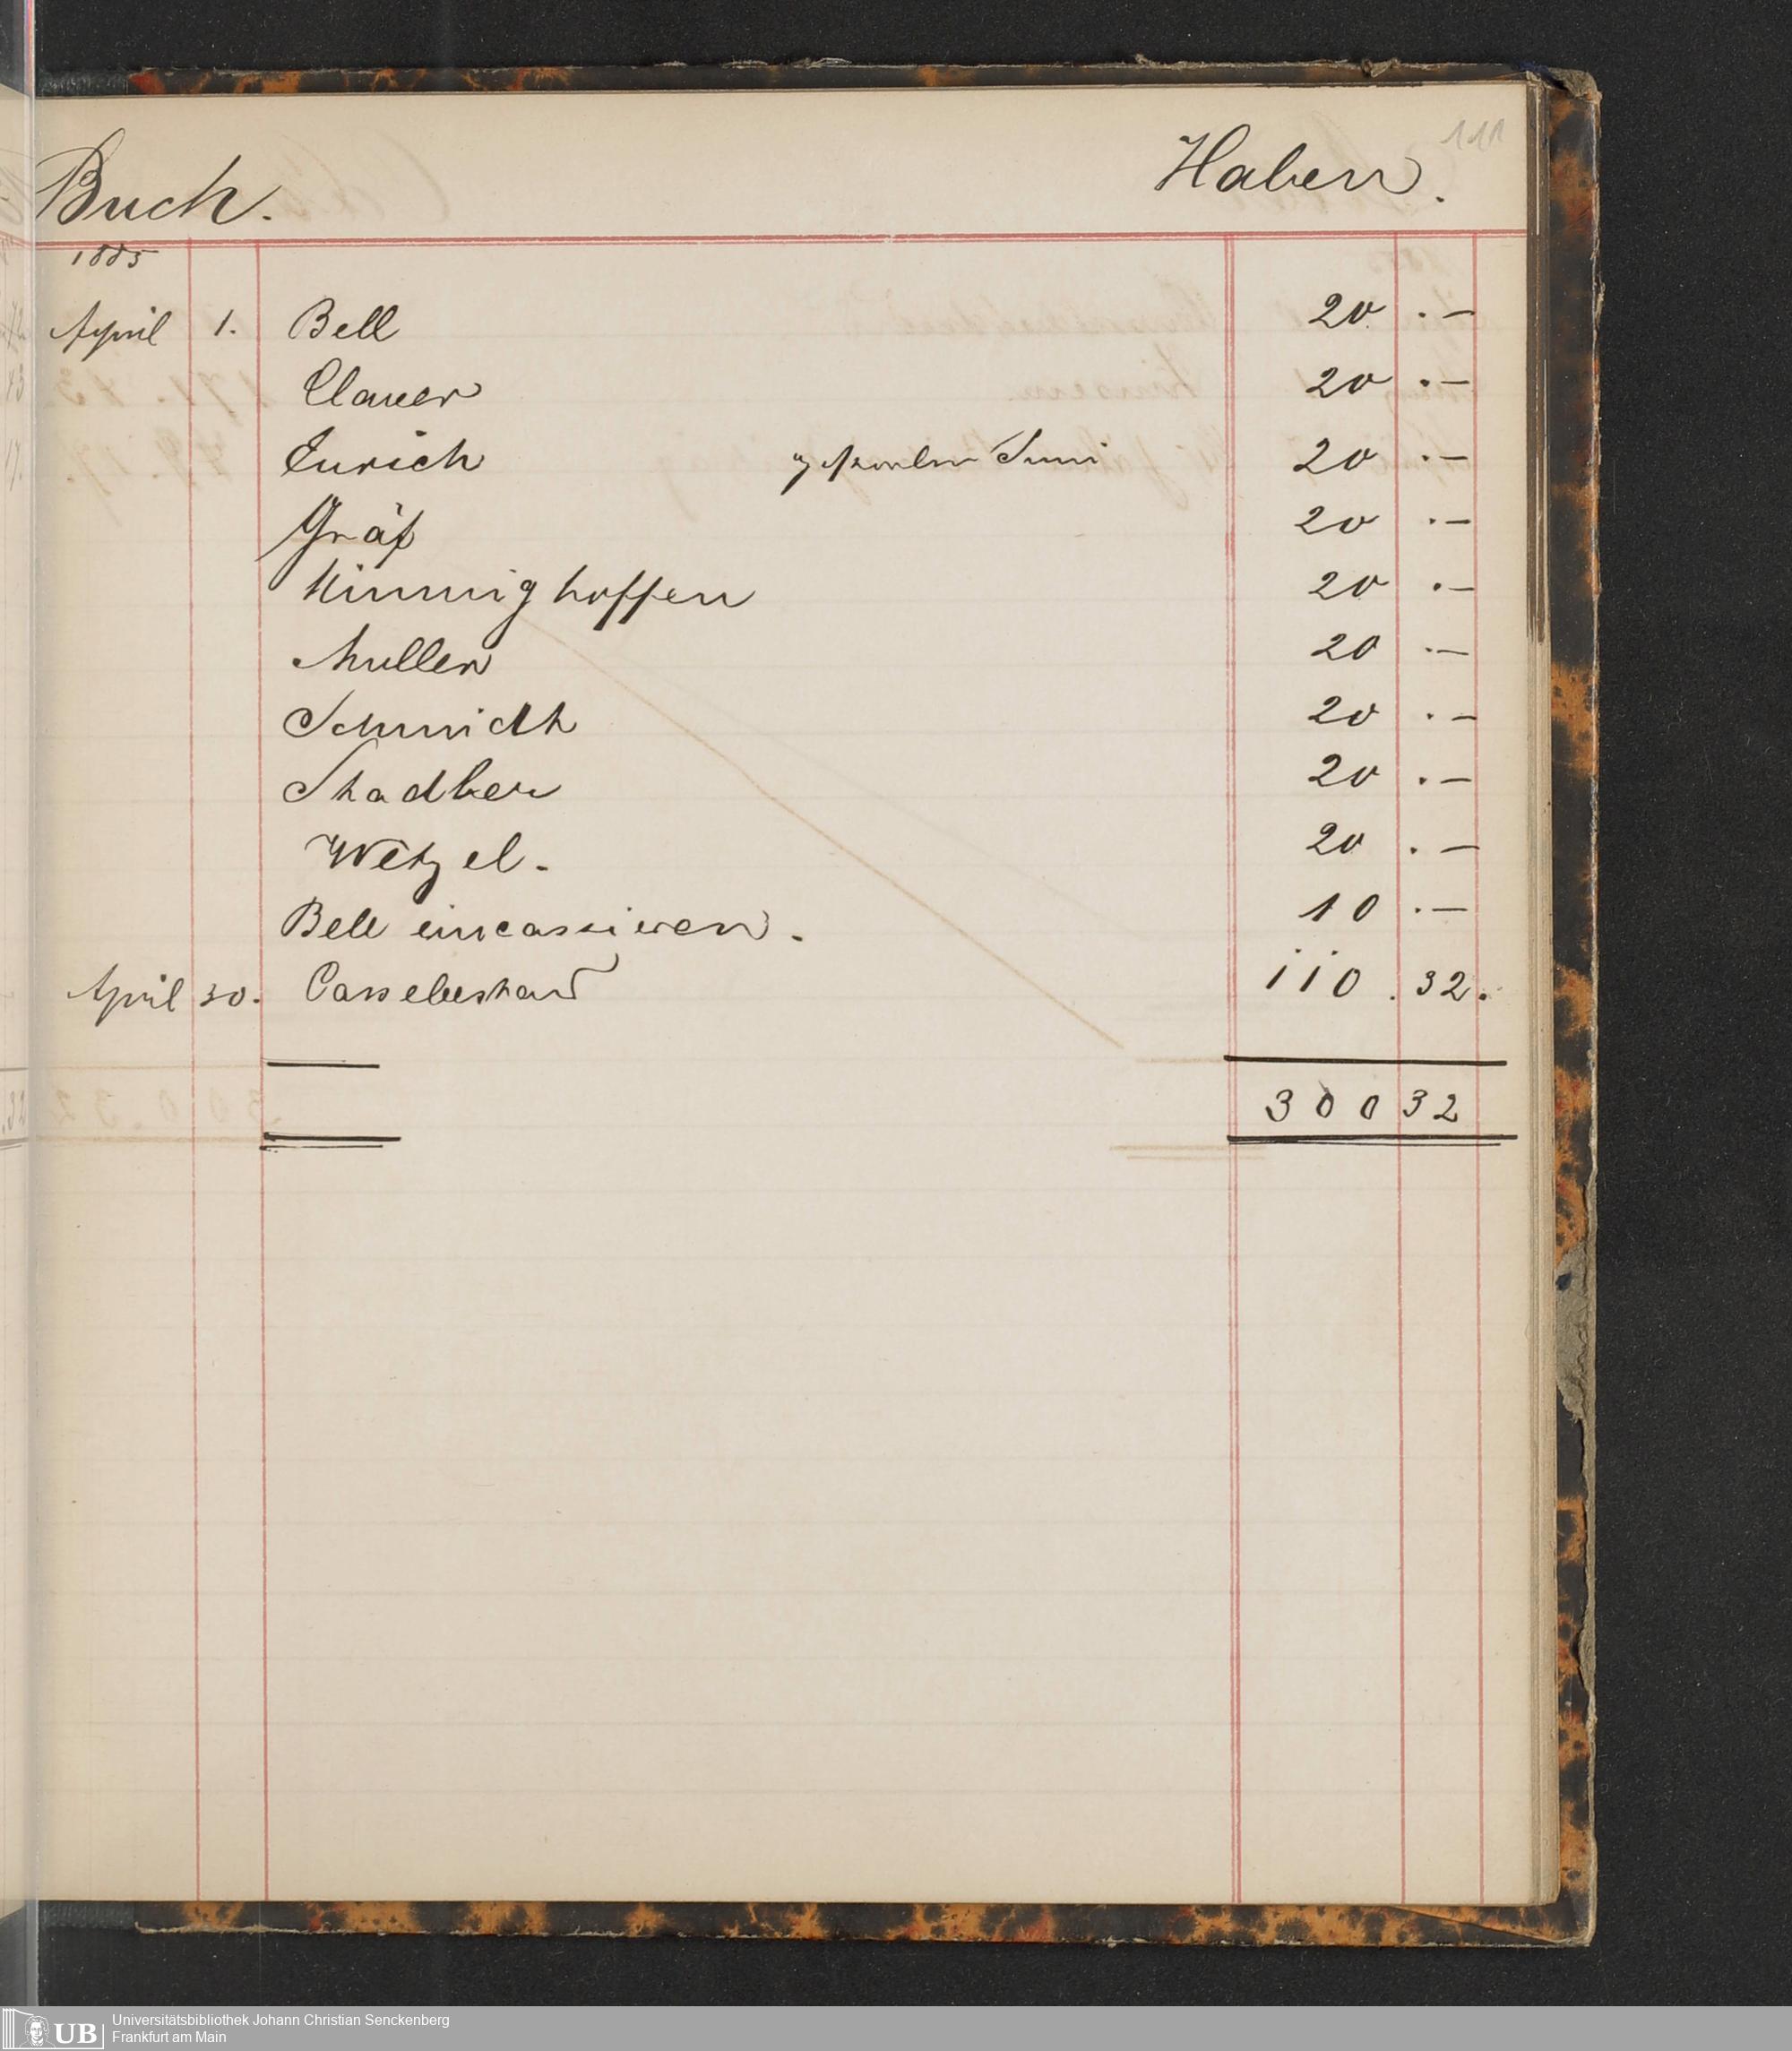 111
Buch. Haben.
1885
April 1. Bell 20 . —
Clauer 20 . —
Eurich Juni 20 . —
Gräf 20 . —
Kimmighoffen 20 . —
Muller 20 . —
Schmidt 20 . —
Stadler 20 . —
Wetzel. 20 . —
Bell eincassieren. 10 . —
April 30. Cassebestand 110 . 32.
300 32
UB Universitätsbibliothek Johann Christian Senckenberg
Frankfurt am Main